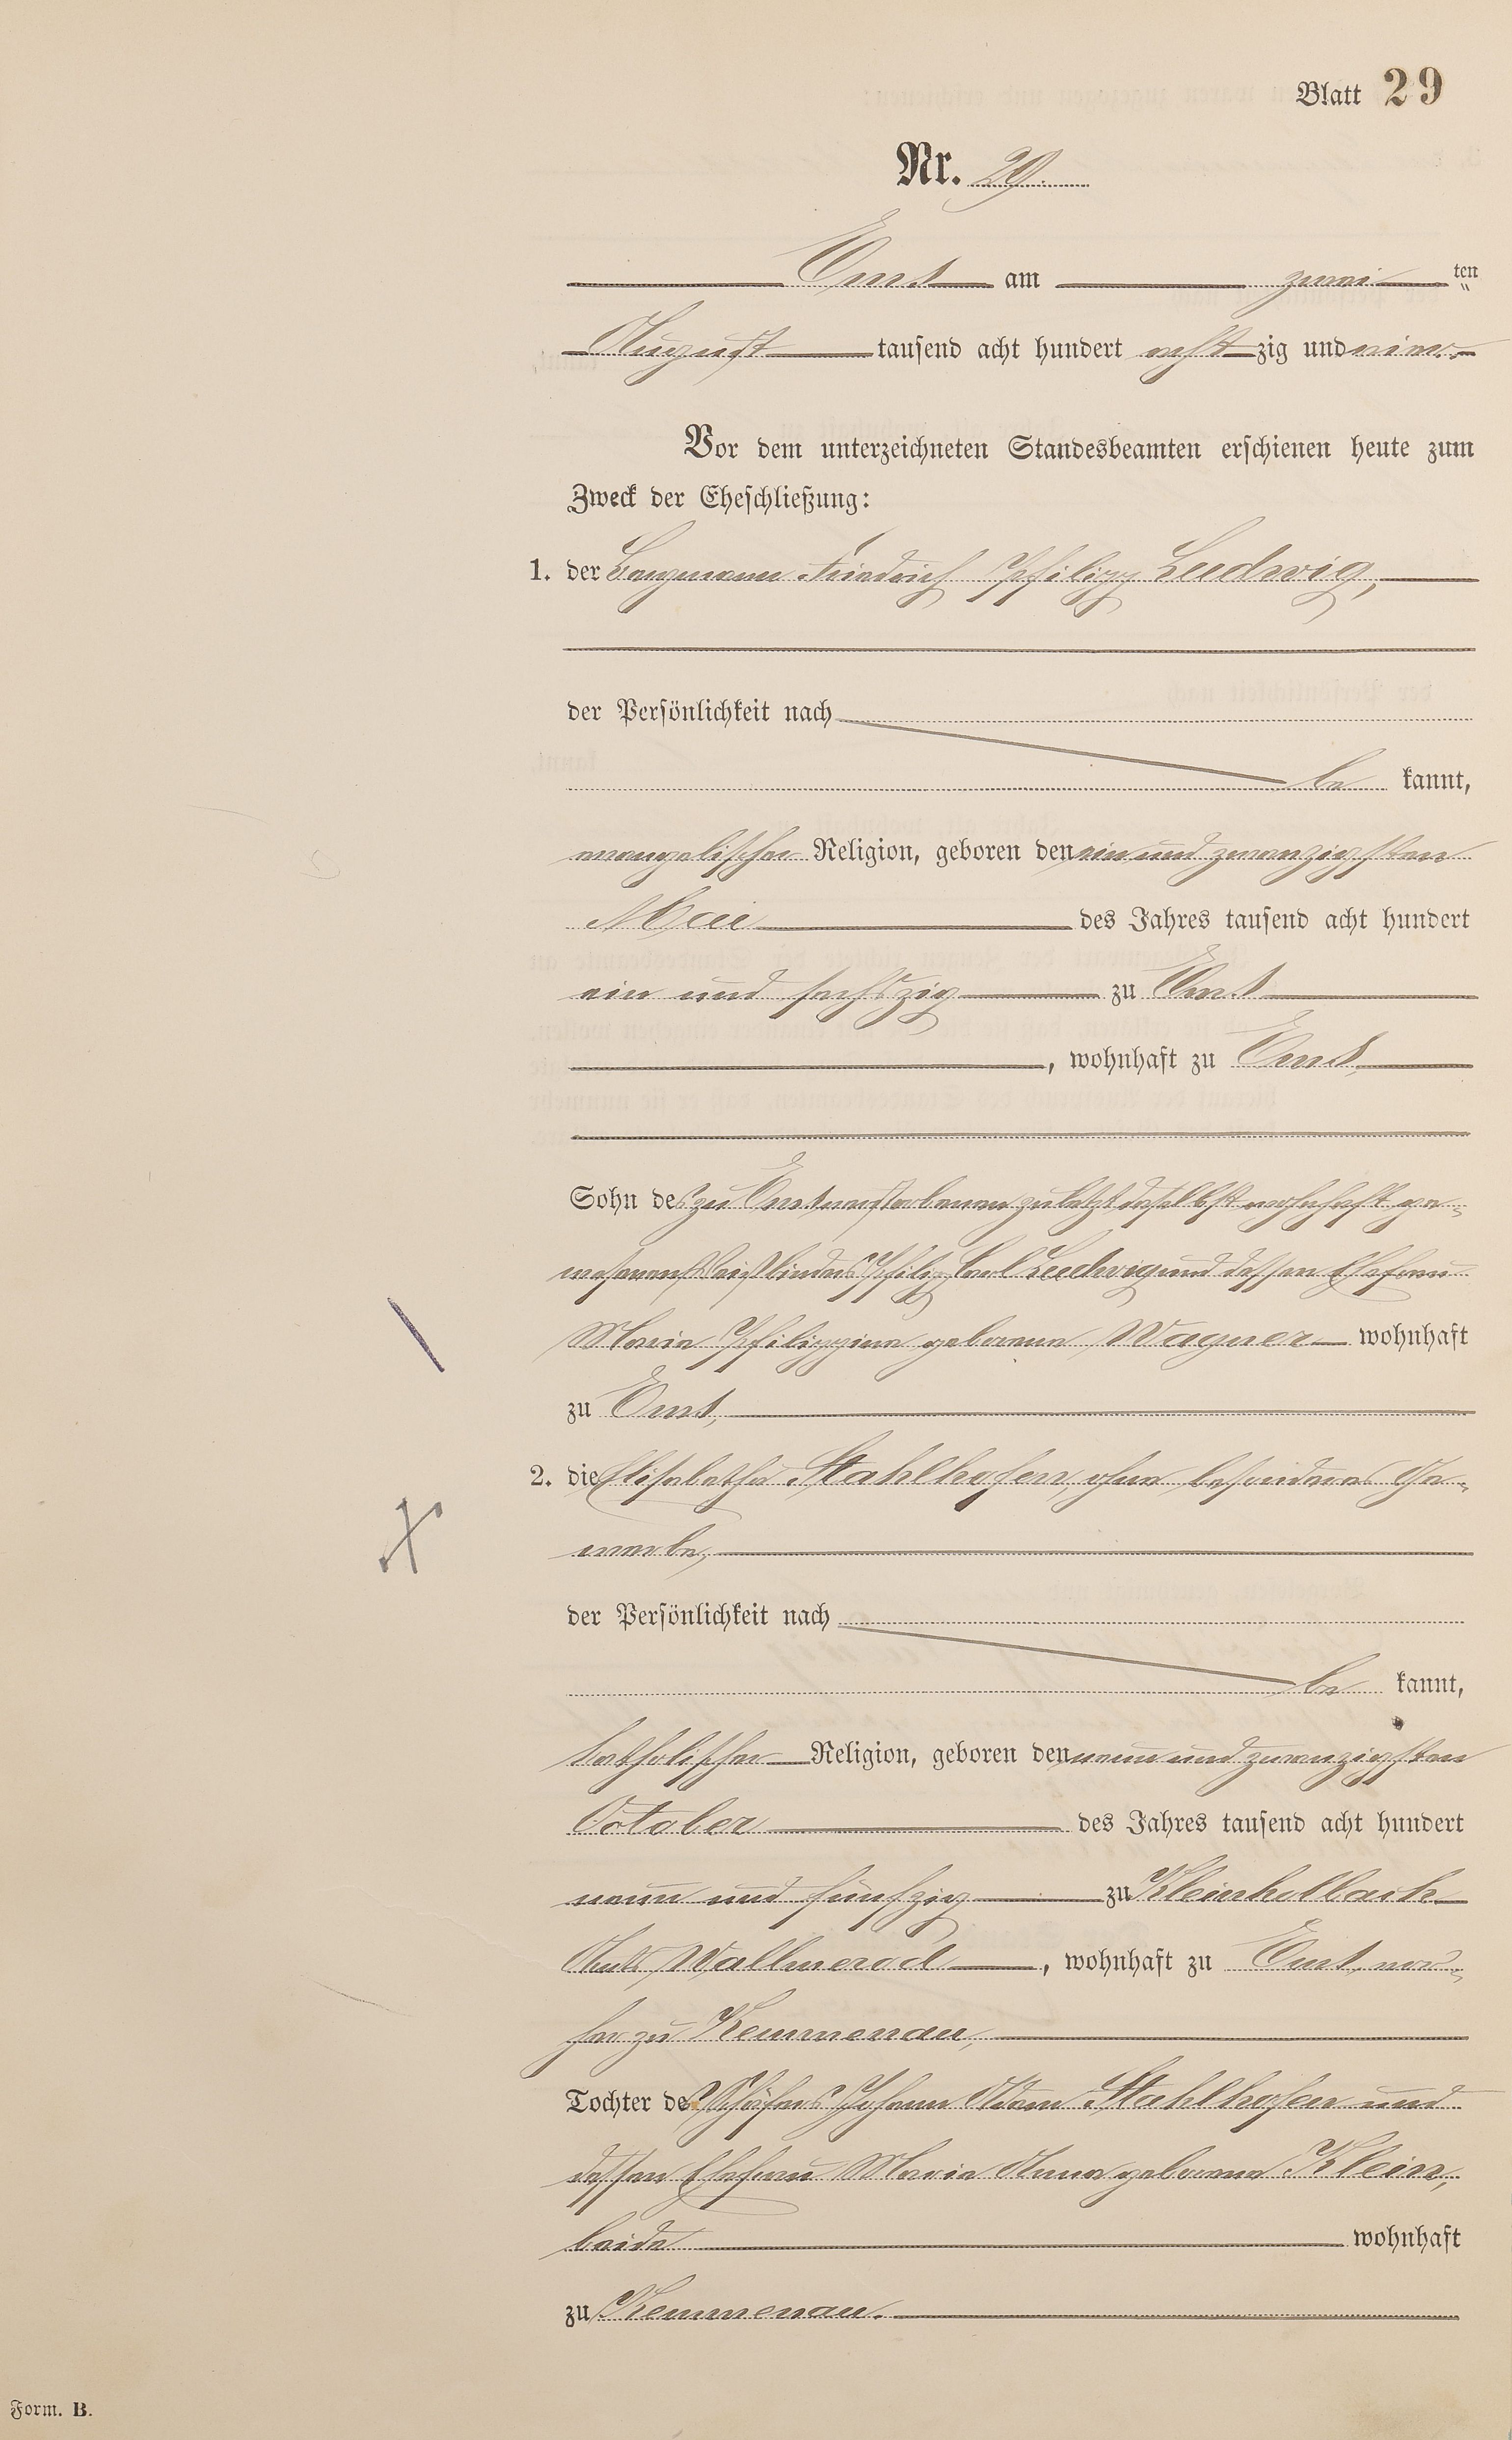 Blatt 29
Nr. 29.
Ems am zwei ten
August tausend acht hundert acht zig und vier.
Vor dem unterzeichneten Standesbeamten erschienen heute zum
Zweck der Eheschließung:
1. der Bergmann Friedrich Philipp Ludwig,
der Persönlichkeit nach
be kannt,
evangelischer Religion, geboren den ein und zwanzigsten
Mai des Jahres tausend acht hundert
ein und sechszig zu Ems
, wohnhaft zu Ems,
Sohn des zu Ems verstorbenen zuletzt daselbst wohnhaft ge-
wesenen Philipp Carl Ludwig und dessen Ehefrau
Maria Philippine geborene Wagner wohnhaft
zu Ems,
2. die Elisabetha Stahlhofen, ohne besonderes Ge-
werbe,
der Persönlichkeit nach
be kannt,
katholischer Religion, geboren den neun und zwanzigsten
October des Jahres tausend acht hundert
neun und fünfzig zu Kleinholbach
Amts Wallmerod , wohnhaft zu Ems, vor-
her zu Kemmenau,
Tochter des Schäfers Johann Adam Stahlhofen und
dessen Ehefrau Maria Anna geborene Klein,
beide wohnhaft
zu Kemmenau.
Form. B.